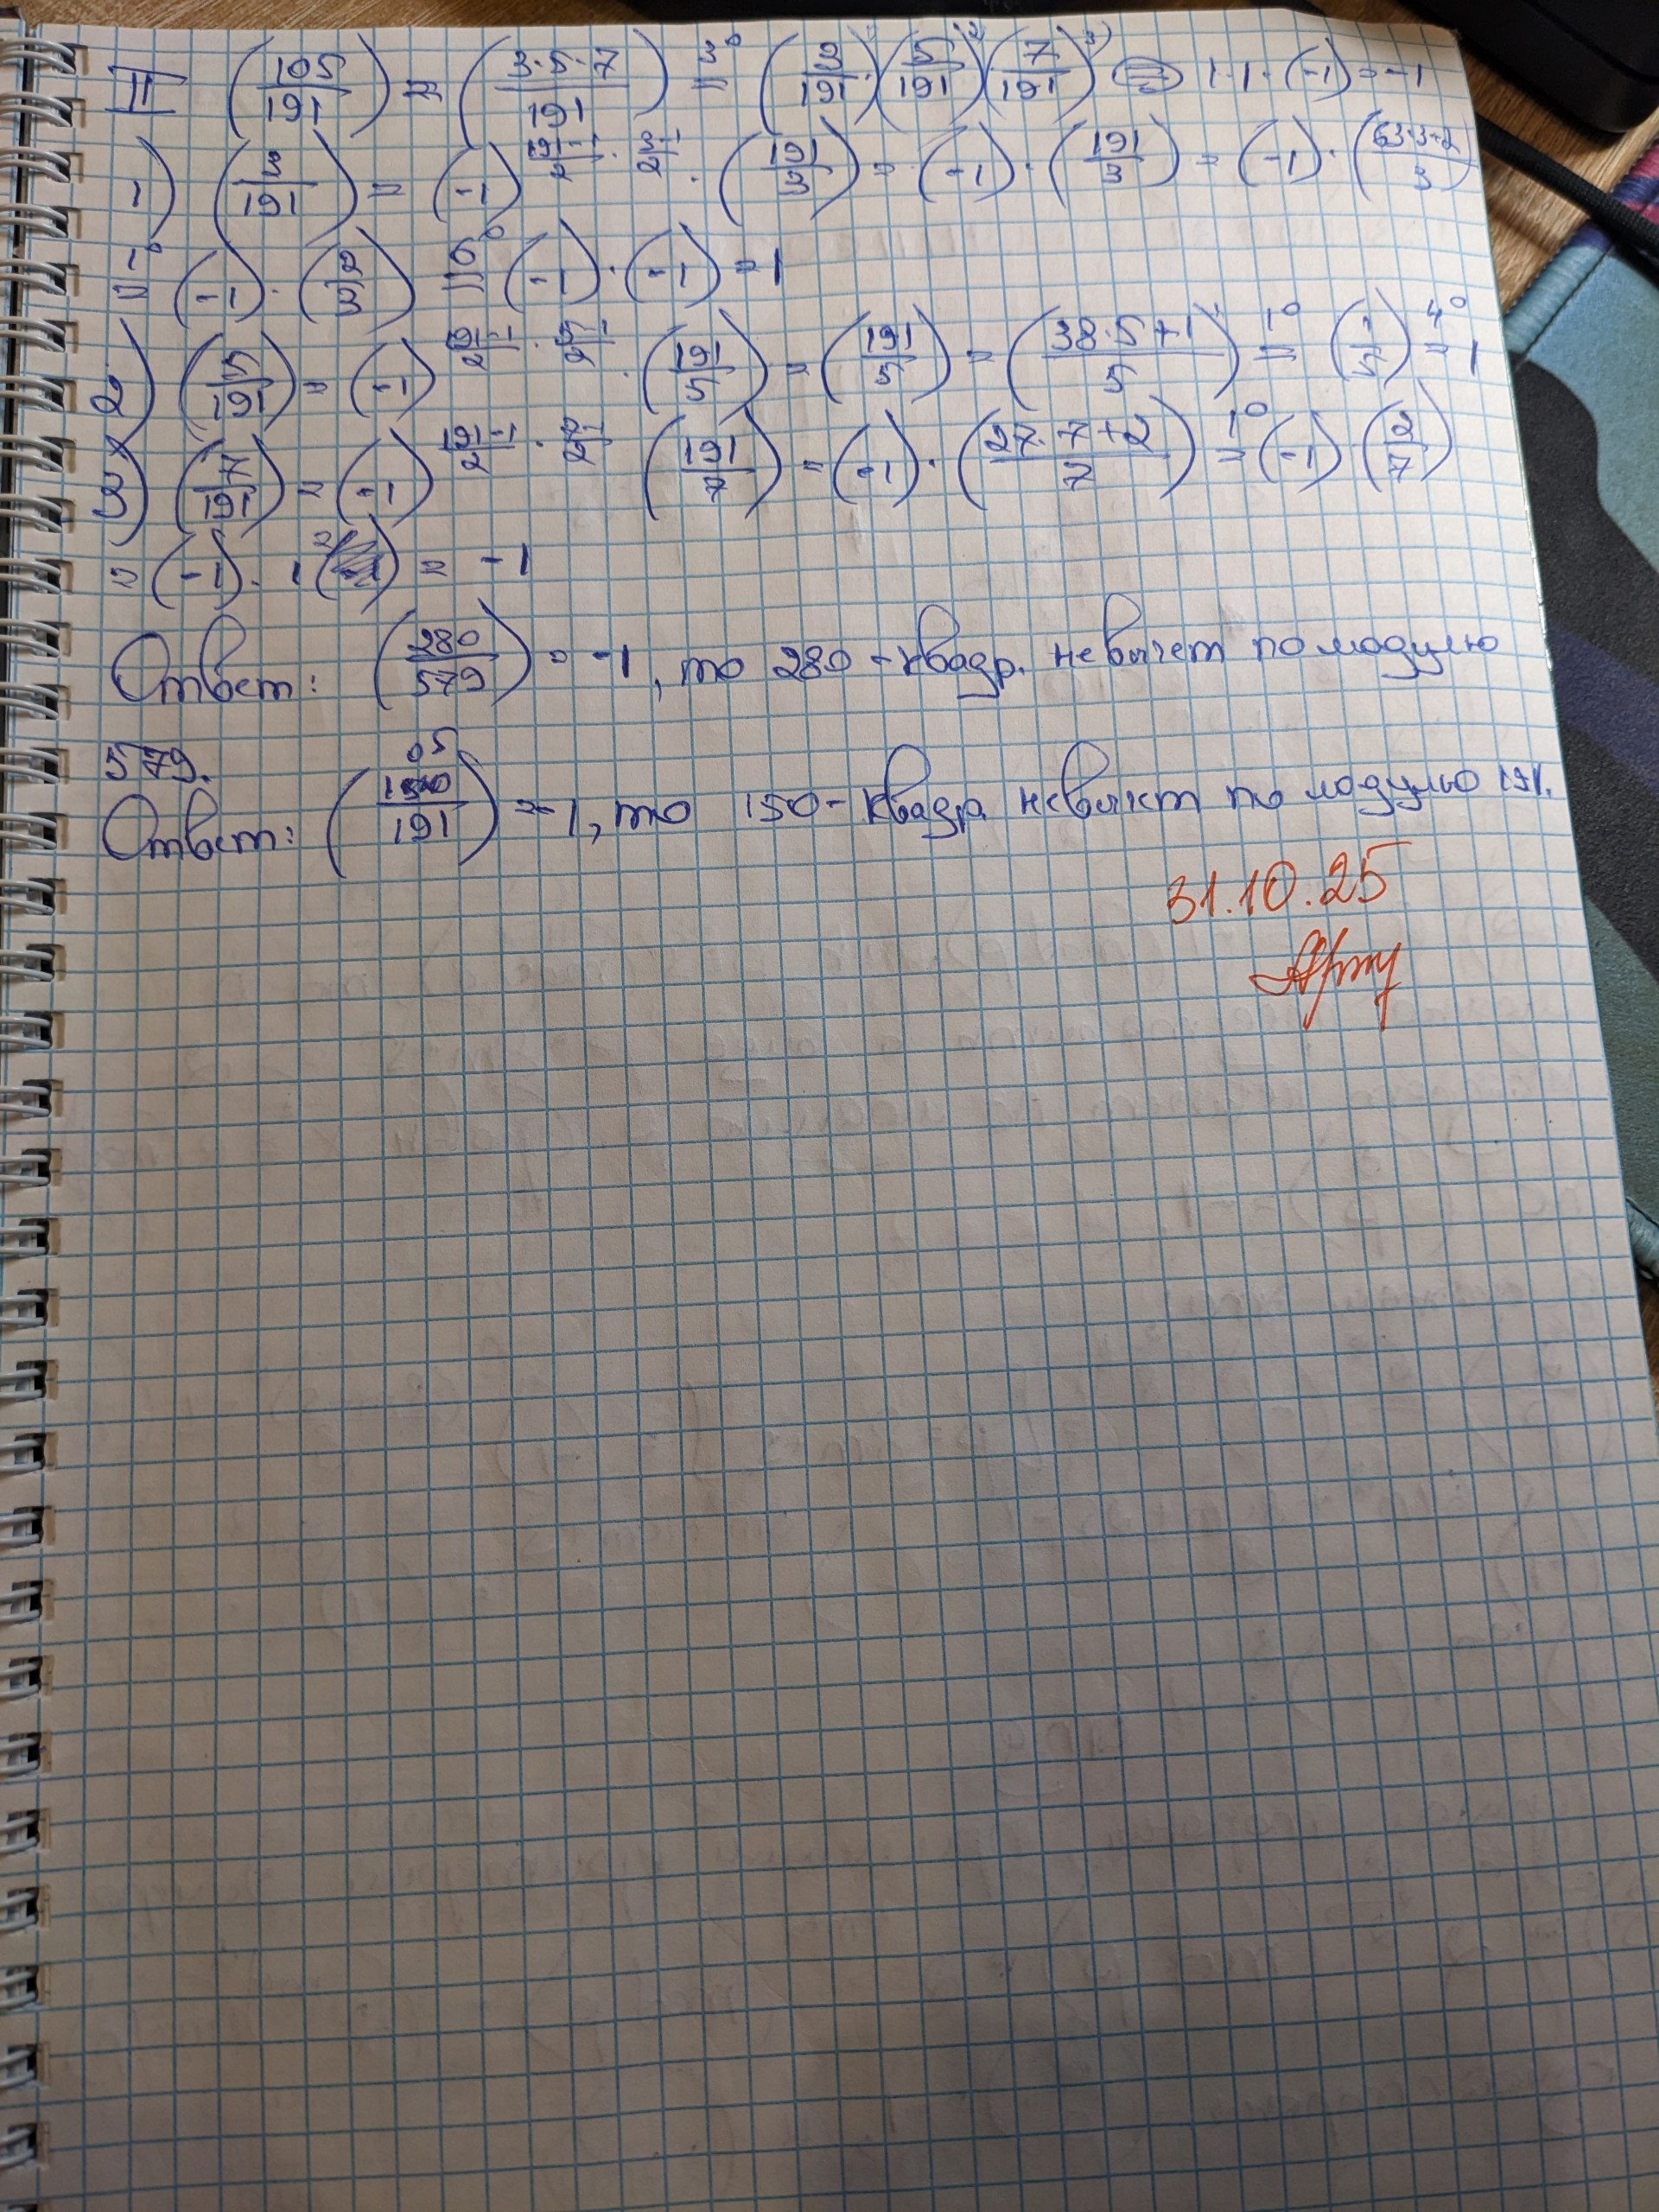 II (105/191) = (3·5·7/191) =3° (3/191)(5/191)²⁾(7/191)³⁾ = 1·1·(-1) = -1
1) (3/191) = (-1)^(191-1/2 · 3-1/2) · (191/3) = (-1)·(191/3) = (-1)·(63·3+2/3)
=1° (-1)·(2/3) =6° (-1)·(-1) = 1
2) (5/191) = (-1)^(191-1/2 · 5-1/2) · (191/5) = (191/5) = (38·5+1/5) =1° (1/5) =4° 1
3) (7/191) = (-1)^(191-1/2 · 7-1/2) (191/7) = (-1)·(27·7+2/7) =1° (-1)(2/7)
= (-1)·1 = -1
Ответ: (280/579) = -1, то 280 - квадр. невычет по модулю
579.
Ответ: (105/191) = -1, то 150 - квадр. невычет по модулю 191.
31.10.25